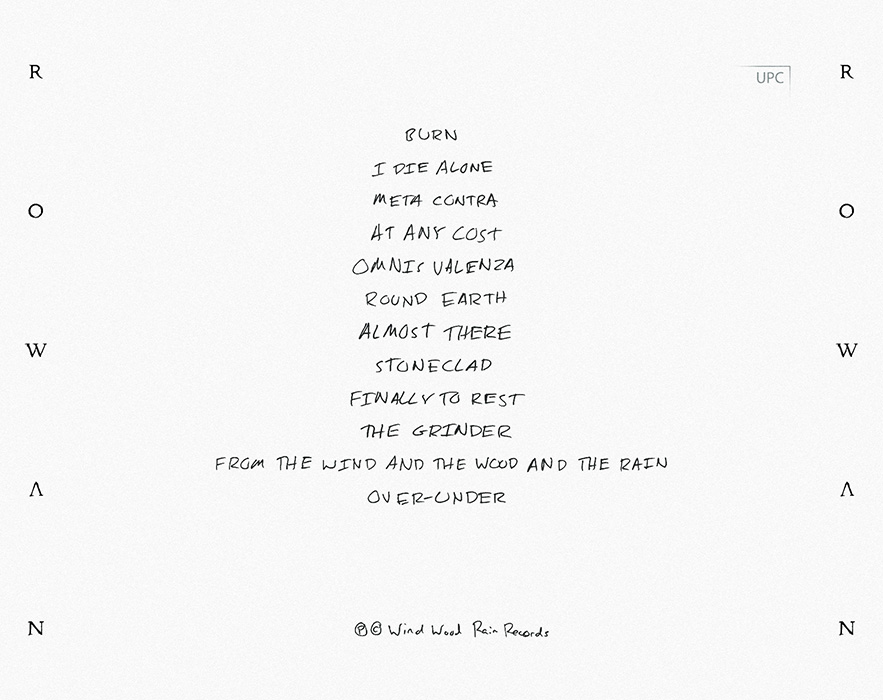 UPC
BURN
I DIE ALONE
META CONTRA
AT ANY COST
OMNIS VALENZA
ROUND EARTH
ALMOST THERE
STONECLAD
FINALLY TO REST
THE GRINDER
FROM THE WIND AND THE WOOD AND THE RAIN
OVER-UNDER
℗© Wind Wood Rain Records
R
O
W
Λ
N
R
O
W
Λ
N